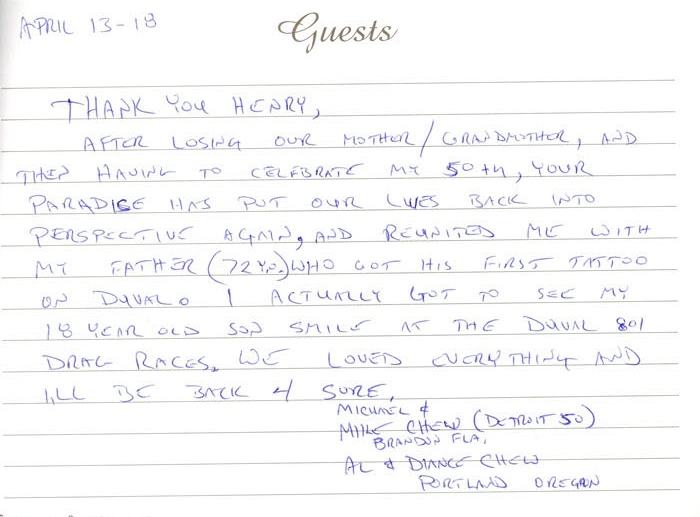 APRIL 13-18
Guests
THANK YOU HENRY,
AFTER LOSING OUR MOTHER/GRANDMOTHER, AND
THEN HAVING TO CELEBRATE MY 50TH, YOUR
PARADISE HAS PUT OUR LIVES BACK INTO
PERSPECTIVE AGAIN, AND REUNITED ME WITH
MY FATHER (72 YR.) WHO GOT HIS FIRST TATTOO
ON DUVAL. I ACTUALLY GOT TO SEE MY
18 YEAR OLD SON SMILE AT THE DUVAL 801
DRAG RACES. WE LOVED EVERYTHING AND
I,LL BE BACK 4 SURE,
MICHAEL &
MIKE CHEW (DETROIT 50)
BRANDON FLA,
AL & DIANCE CHEW
PORTLAND OREGON